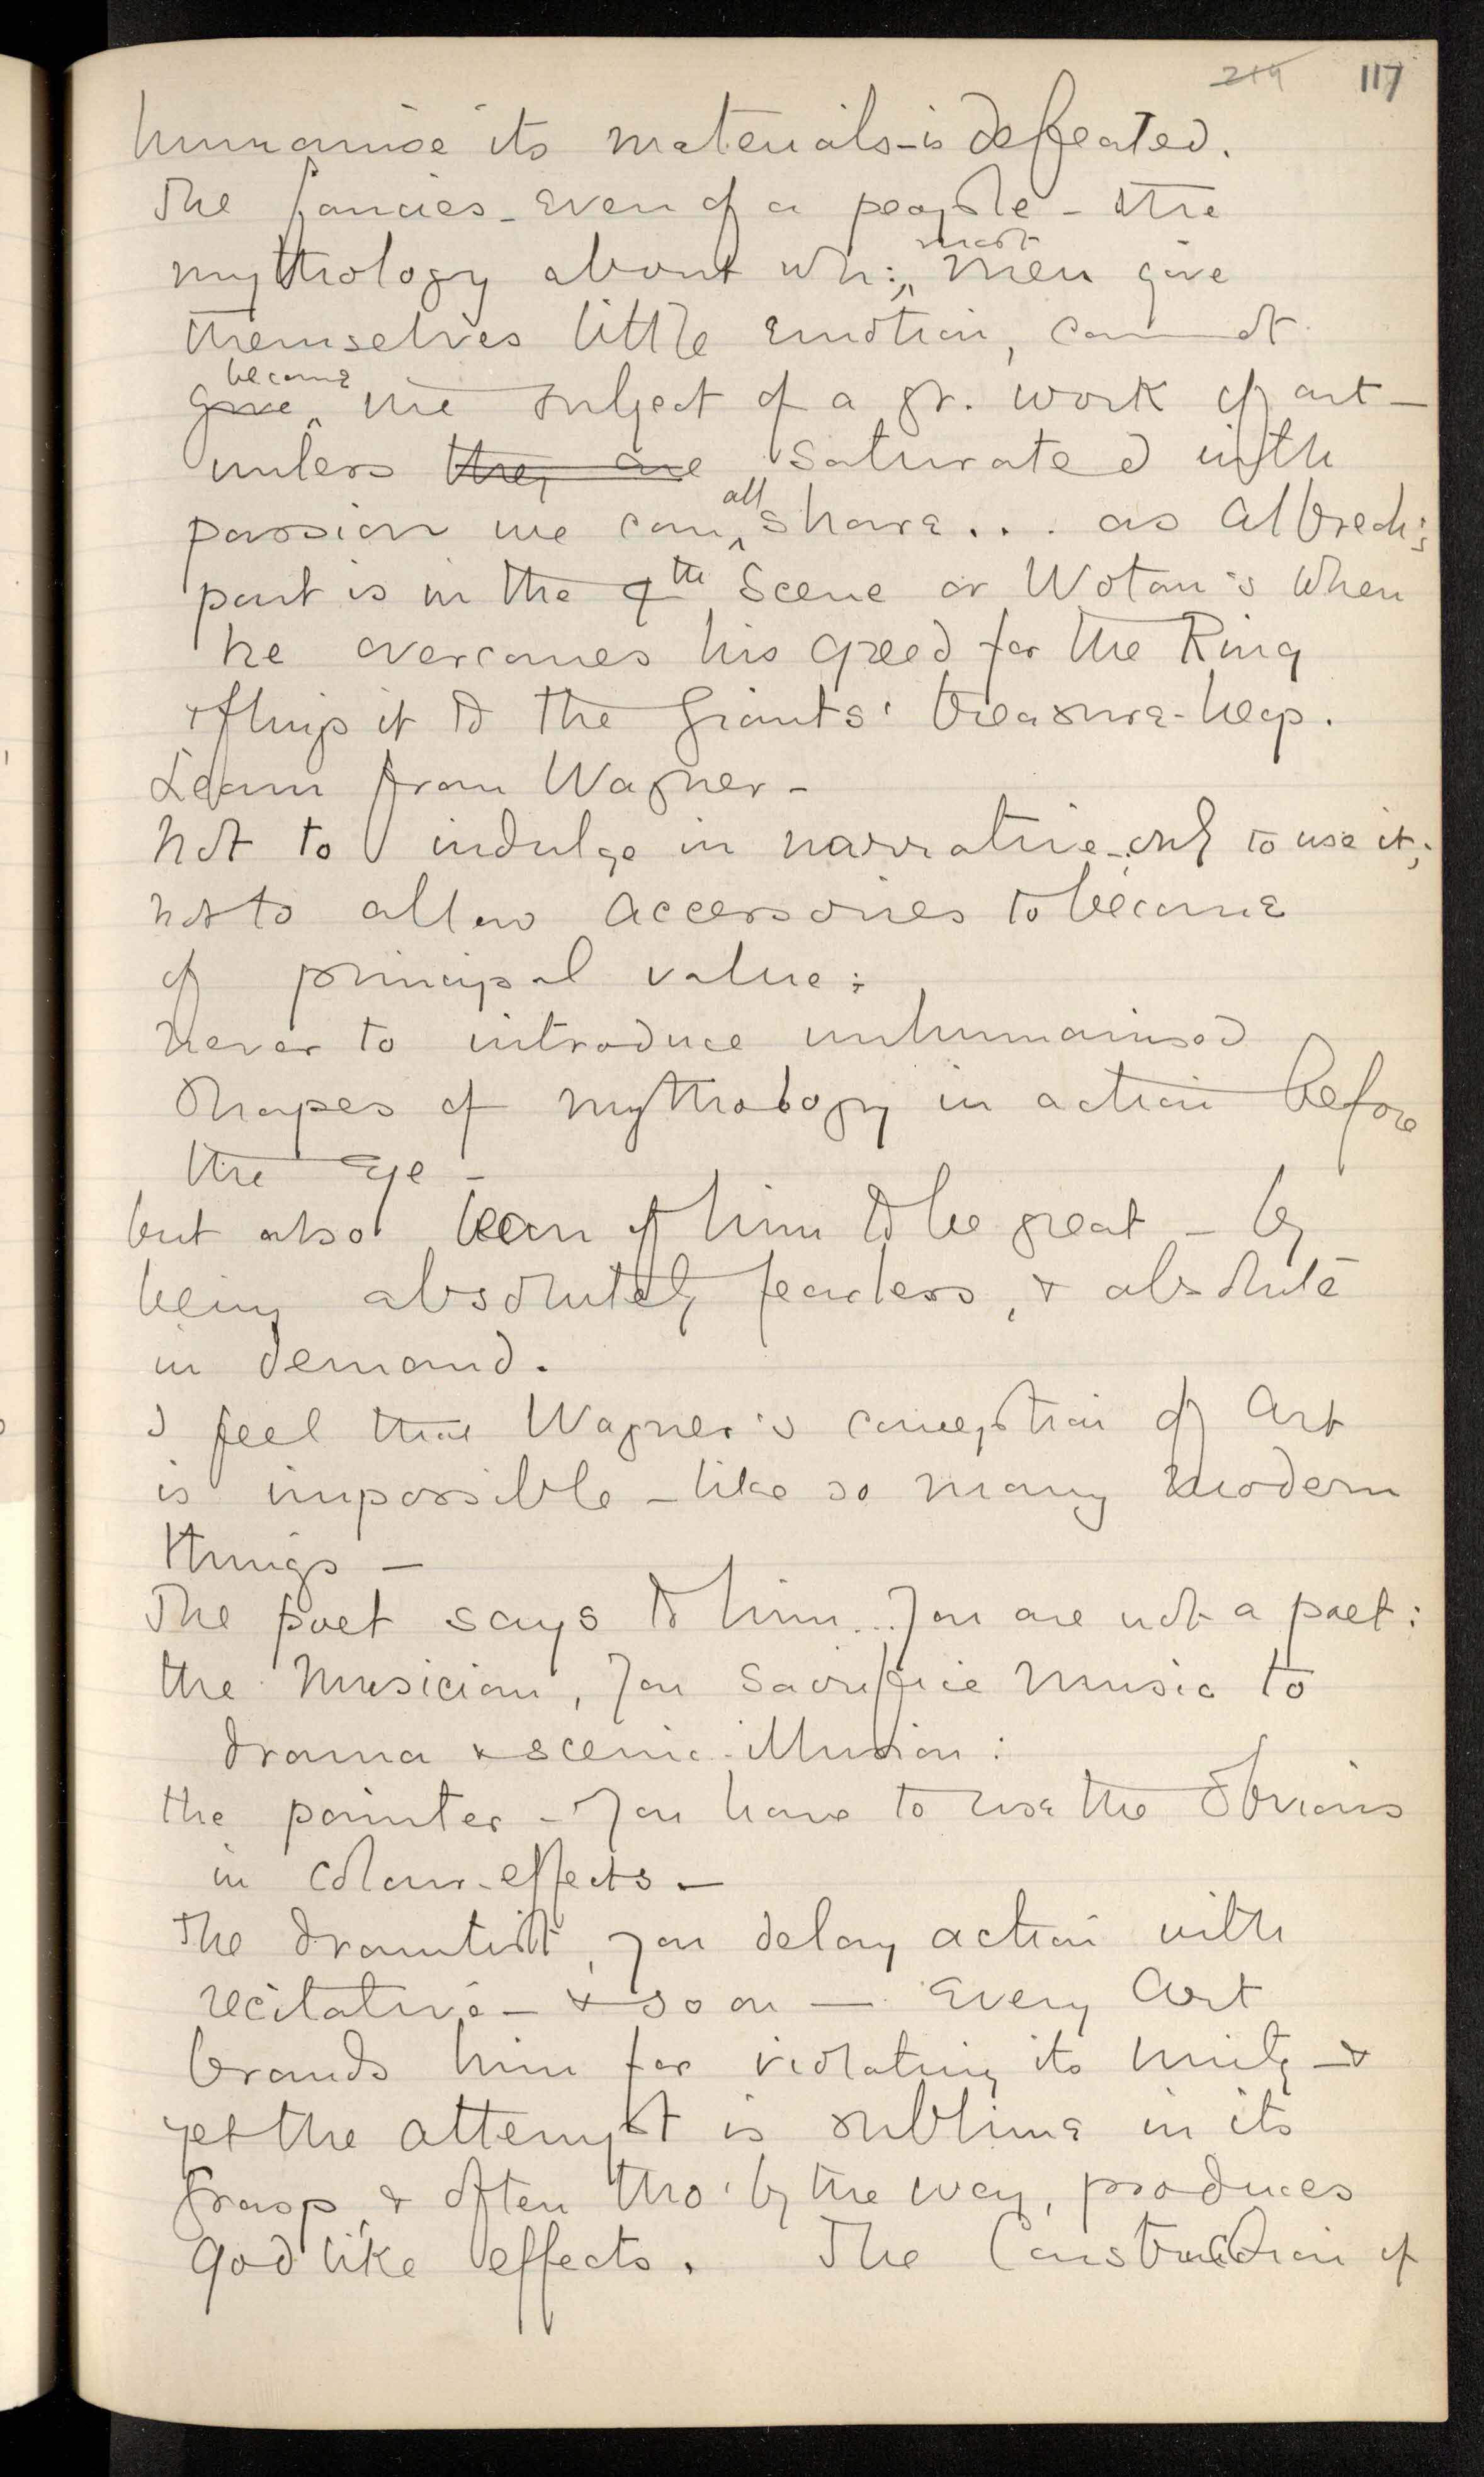 219 117
humanise its materials - is defeated.
The fancies - even of a people - the
mythology about wh: most men give
themselves little emotion, cannot
give become the subject of a gr. work of art -
unless they are saturated with
passion we can all share... as Albrech's
part is in the 4th Scene or Wotan's when
he overcomes his greed for the Ring
& flings it to the Giants' treasure-heap.
Learn from Wagner -
not to indulge in narrative - only to use it;
not to allow accessories to become
of principal value;
never to introduce unhumanised
shapes of mythology in action before
the eye -
but also learn of him to be great - by
being absolutely fearless, & absolute
in demand.
I feel that Wagner's conception of Art
is impossible - like so many modern
things -
The poet says to him... you are not a poet:
the Musician, you sacrifice music to
drama & scenic-illusion:
the painter - you have to use the obvious
in colour-effects -
The dramtist, you delay action with
recitative - & so on - Every Art
brands him for violating its unity - &
yet the attempt is sublime in its
grasp & often tho' by the way, produces
godlike effects. The Construction of